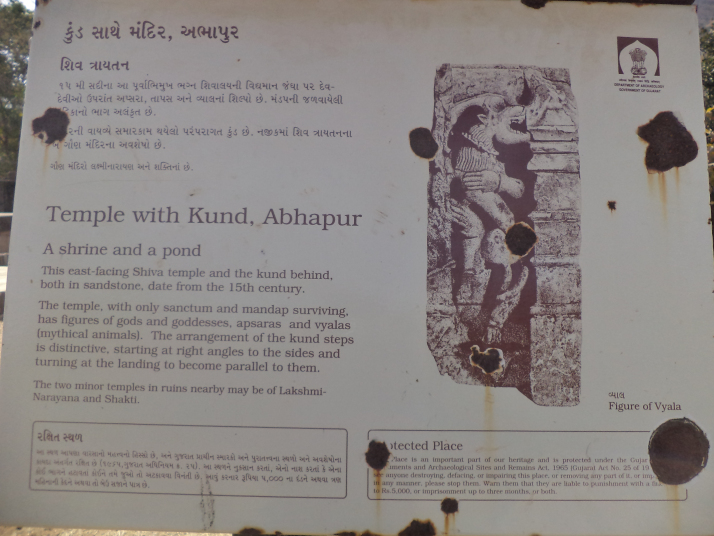 કુંડ સાથે મંદિર, અભાપુર
શિવ ત્રાયતન
૧૫ મી સદીના આ પૂર્વાભિમુખ ભગ્ન શિવાલયની વિદ્યમાન જંઘા પર દેવ-
દેવીઓ ઉપરાંત અપ્સરા, તાપસ અને વ્યાલનાં શિલ્પો છે. મંડપની જળવાયેલી
ભાગ અલંકૃત છે.
વાયવ્યે સમારકામ થયેલો પરંપરાગત કુંડ છે. નજીકમાં શિવ ત્રાયતનના
ગૌણ મંદિરના અવશેષો છે.
ગૌણ મંદિરો લક્ષ્મીનારાયણ અને શક્તિનાં છે.
DEPARTMENT OF ARCHAEOLOGY
GOVERNMENT OF GUJARAT
Temple with Kund, Abhapur
A shrine and a pond
This east-facing Shiva temple and the kund behind,
both in sandstone, date from the 15th century.
The temple, with only sanctum and mandap surviving,
has figures of gods and goddesses, apsaras and vyalas
(mythical animals). The arrangement of the kund steps
is distinctive, starting at right angles to the sides and
turning at the landing to become parallel to them.
The two minor temples in ruins nearby may be of Lakshmi-
Narayana and Shakti.
વ્યાલ
Figure of Vyala
રક્ષિત સ્થળ
આ સ્થળ આપણા વારસાનો મહત્વનો હિસ્સો છે, અને ગુજરાત પ્રાચીન સ્મારકો અને પુરાતત્ત્વના સ્થળો અને અવશેષોના
Protected Place
Place is an important part of our heritage and is protected under the
and Archaeological Sites and Remains Act, 1965 (Gujarat Act No. 25 of
impose destroying, defacing, or impairing this place, or removing any part of it, or
in any manner, please stop them. Warn them that they are liable to punishment with a
to Rs.5,000, or imprisonment up to three months, or both.